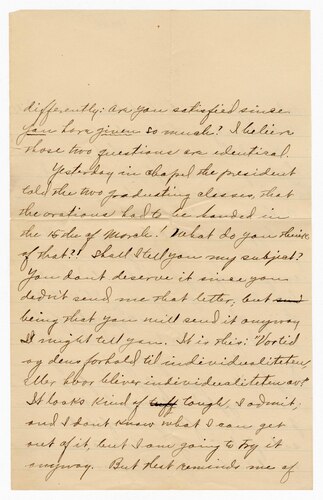 differently: Are you satisfied since
you have given so much? I believe
those two questions are identical.
Yesterday in chapel the president
told the two graduating classes, that
the orations had to be handed in
the 15th of March! What do you think
of that?! Shall I tell you my subject?
You dont deserve it since you
didn't send me that letter; but
being that you will send it anyway
I might tell you. It is this: Vor tid
og dens forhold til individualiteten,
eller hvor bliver individualiteten av?
It looks kind of tough, I admit,
and I don't know what I can get
out of it, but I am going to try it
anyway. But that reminds me of